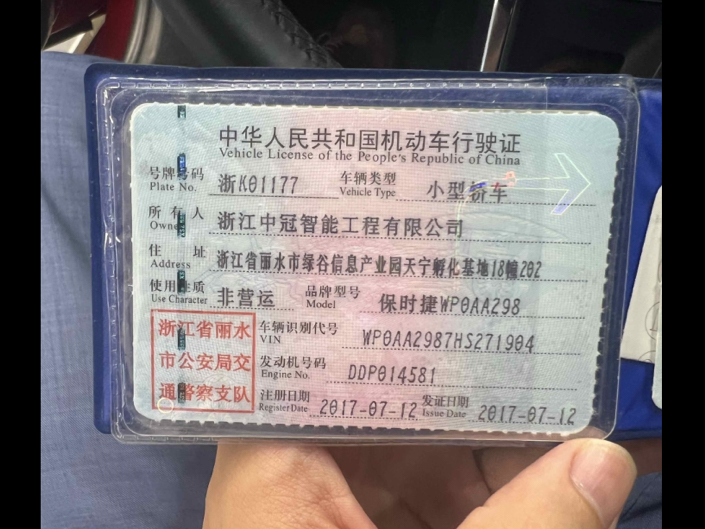 中华人民共和国机动车行驶证
Vehicle License of the People's Republic of China
号牌号码 浙K01177 车辆类型 小型轿车
Plate No. Vehicle Type
所有人 浙江中冠智能工程有限公司
Owner
住址 浙江省丽水市绿谷信息产业园天宁孵化基地18幢202
Address
使用性质 非营运 品牌型号 保时捷WP0AA298
Use Character Model
浙江省丽水 车辆识别代号 WP0AA2987HS271904
VIN
市公安局交 发动机号码 DDP014581
Engine No.
通警察支队 注册日期 2017-07-12 发证日期 2017-07-12
Register Date Issue Date